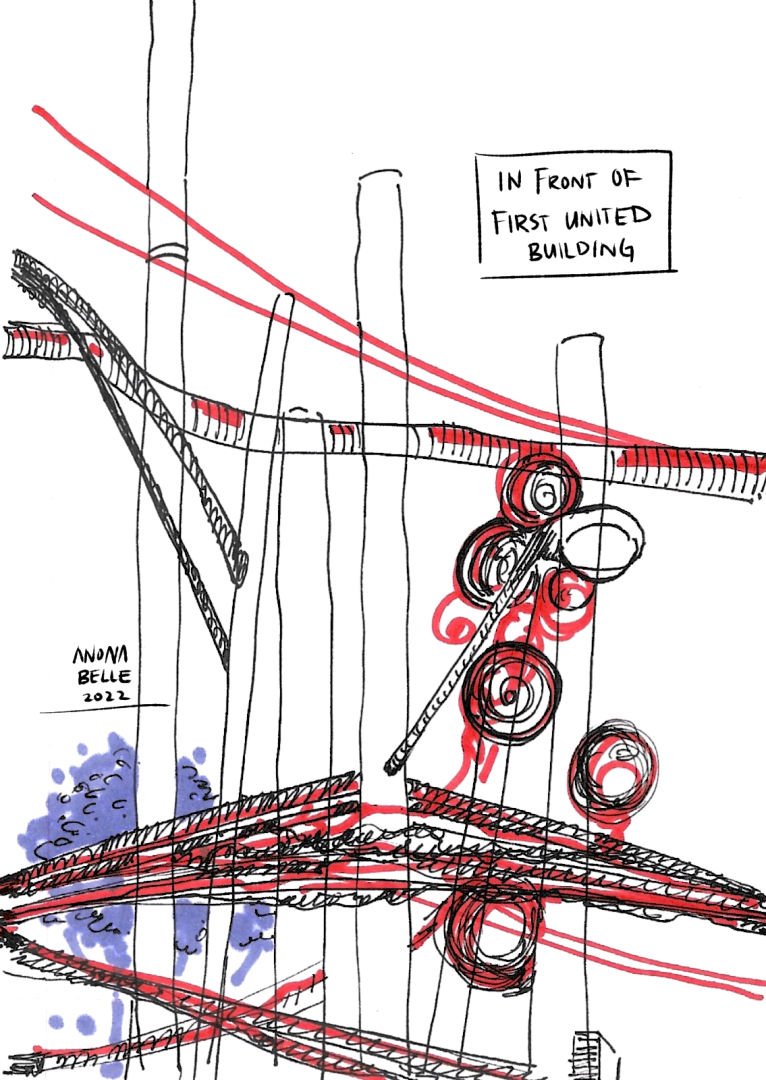 IN FRONT OF
FIRST UNITED
BUILDING
ANONA
BELLE
2022